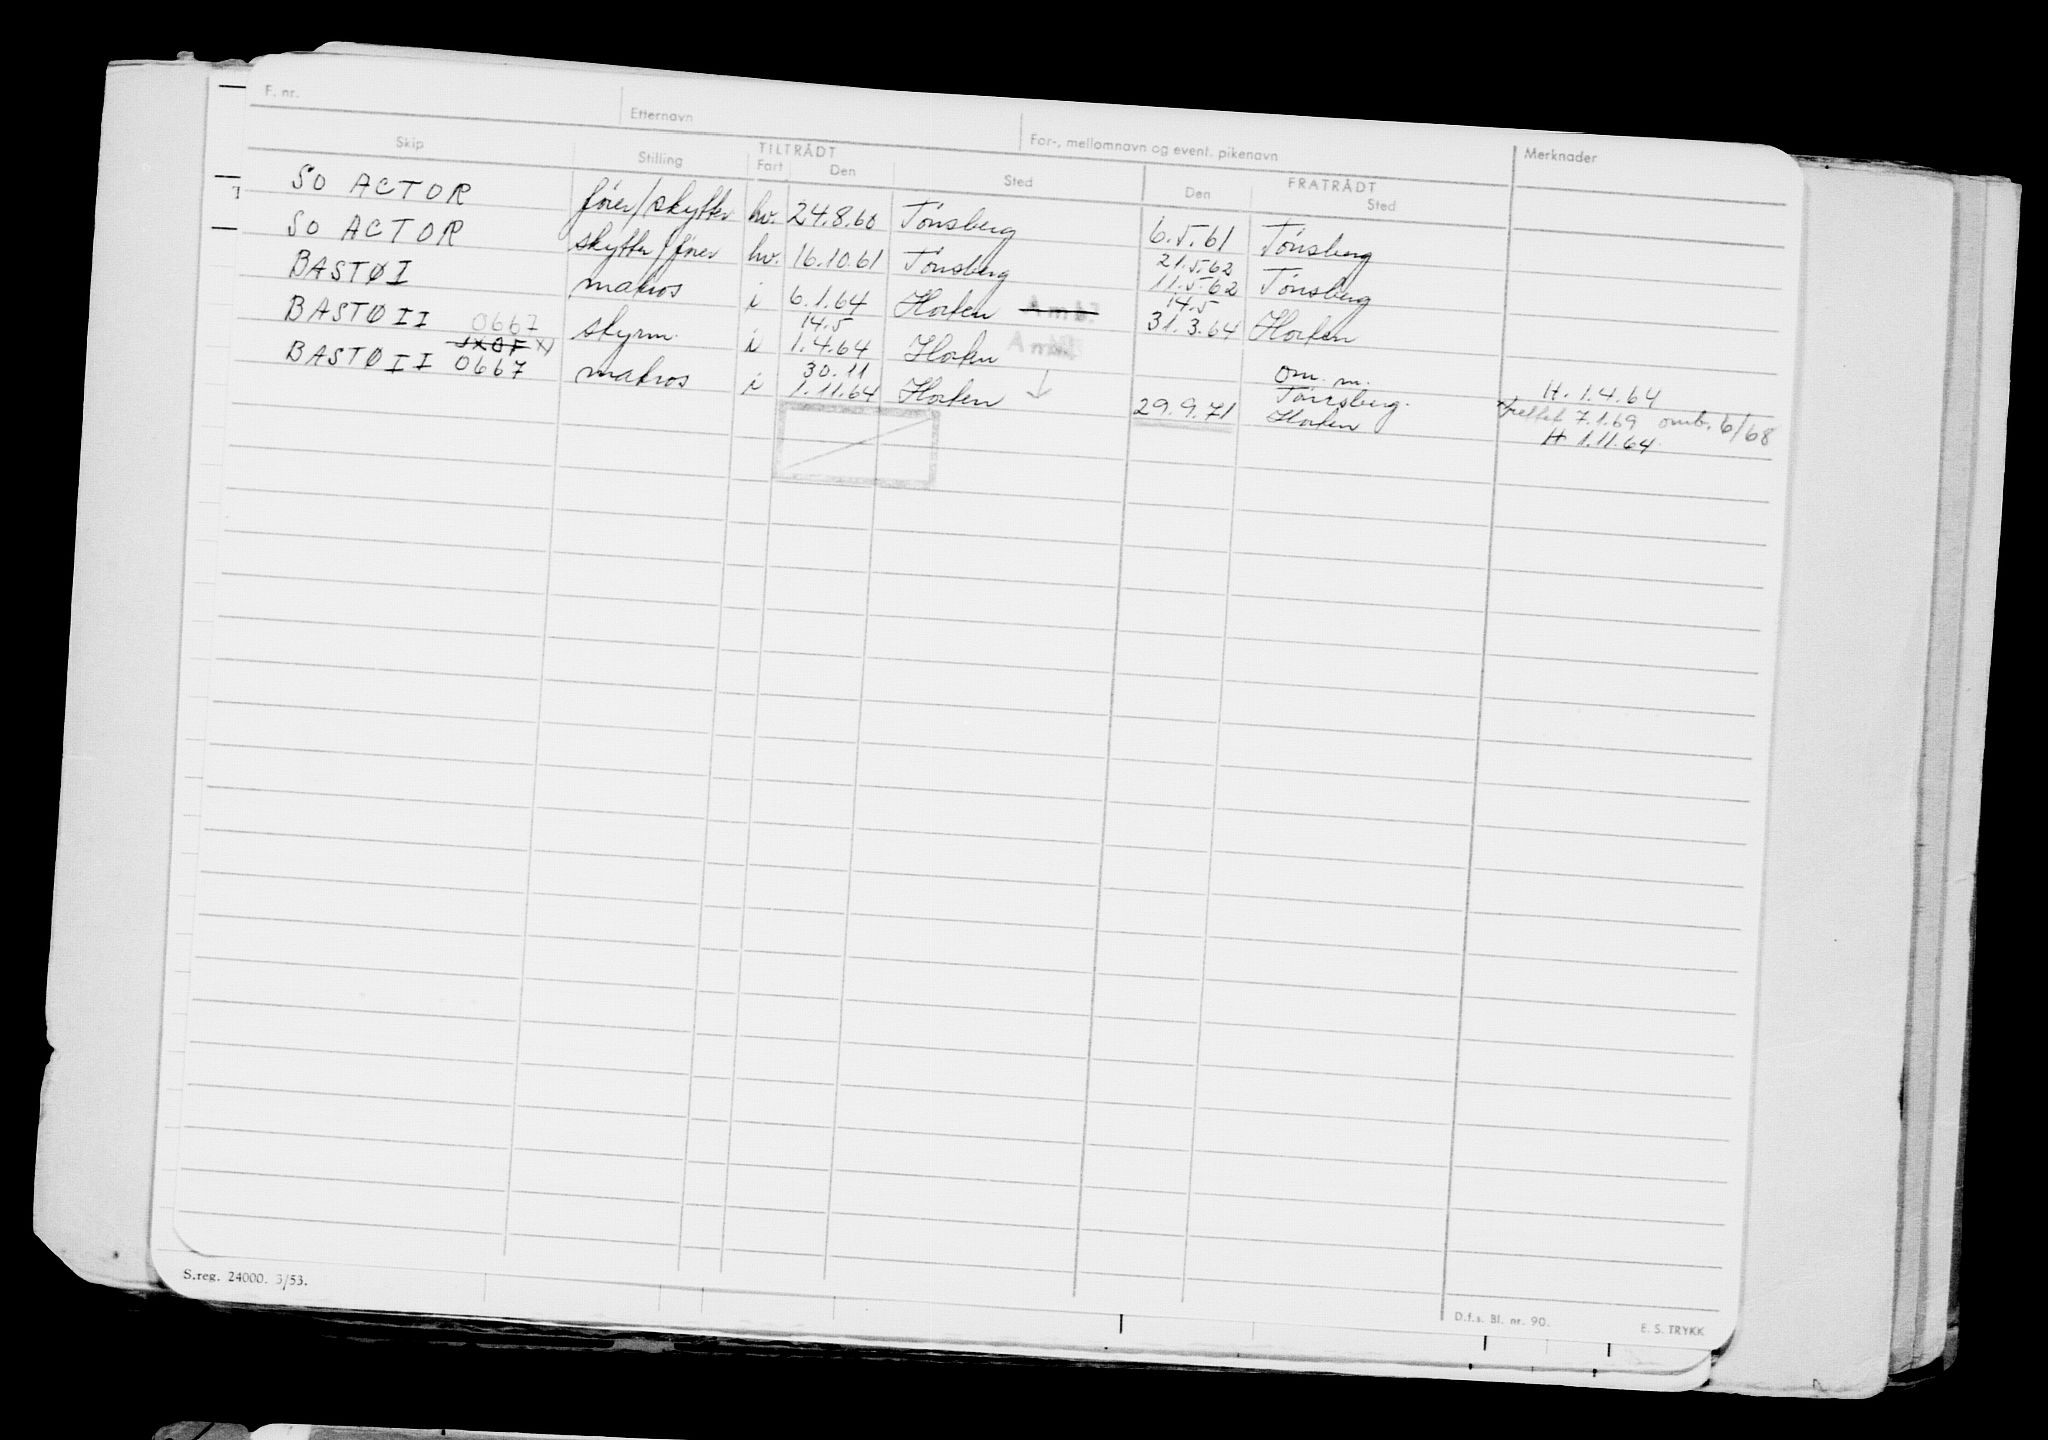 F. nr. Etternavn For-, mellomnavn og event. pikenavn Merknader
Skip Stilling TILTRÅDT Fart Den Sted FRATRÅDT Den Sted
SO ACTOR fører/skytter hv. 24.8.60 Tønsberg 6.5.61 Tønsberg
SO ACTOR skytter/fører hv. 16.10.61 Tønsberg 21.5.62 11.5.62 Tønsberg
BASTØ I matros i 6.1.64 Horten Amb. 14.5 31.3.64 Horten
BASTØ II 0667 skyrm. i 14.5 1.4.64 Horten om. m. Tønsberg. H. 1.4.64
BASTØ II 0667 matros i 30.11 1.11.64 Horten 29.9.71 Horten rettet 7.1.69 omb. 6/68
H 1.11.64.
S.reg. 24000. 3/53.
D.f.s. Bl. nr. 90. E. S. TRYKK